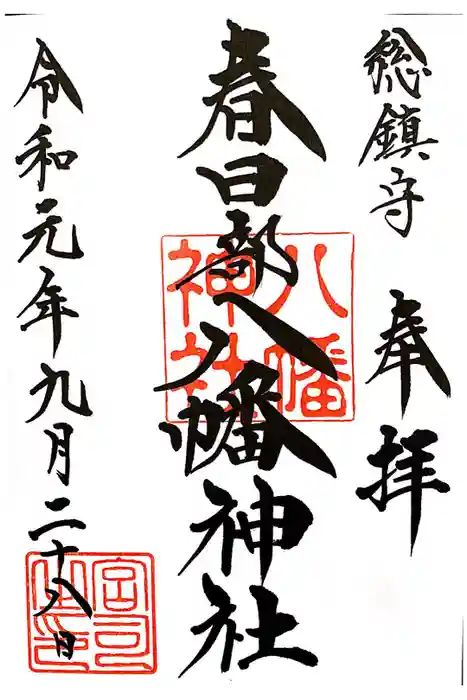 総鎮守 奉拝
春日部八幡神社
八幡
神社
令和元年九月二十八日
宮司之印